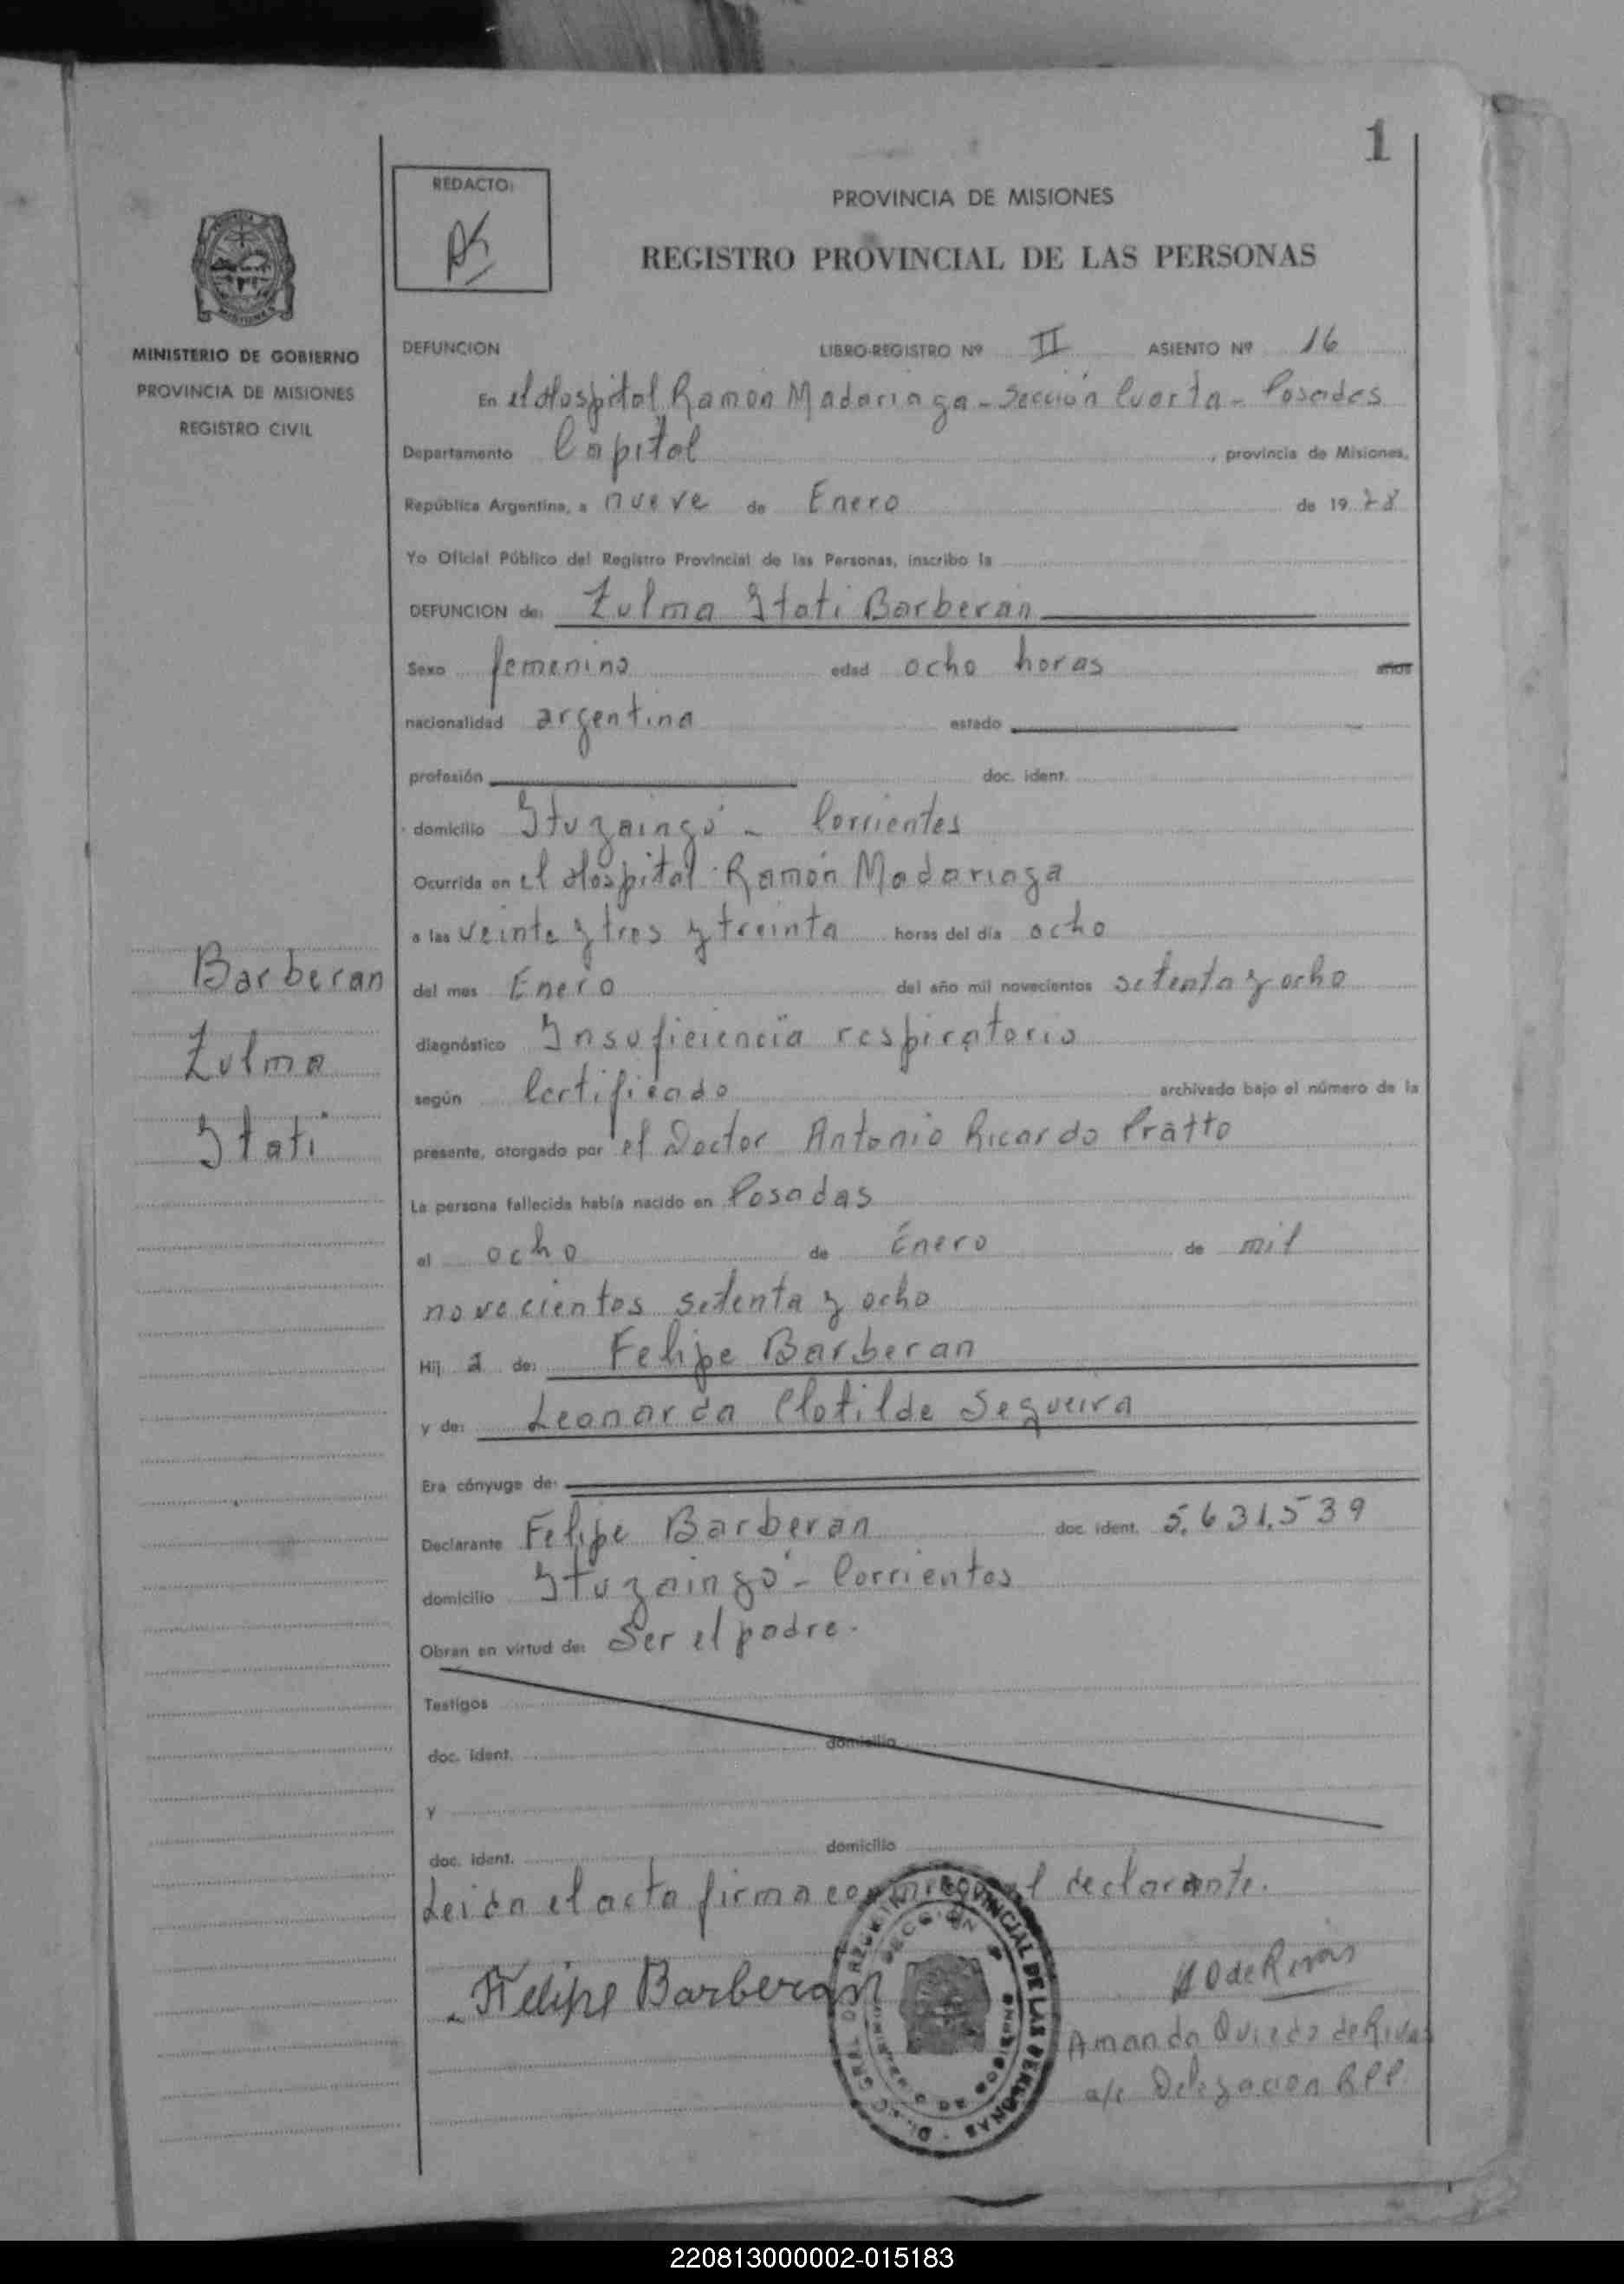 1
REDACTO:
PROVINCIA DE MISIONES
REGISTRO PROVINCIAL DE LAS PERSONAS
MINISTERIO DE GOBIERNO
PROVINCIA DE MISIONES
REGISTRO CIVIL
DEFUNCION LIBRO-REGISTRO Nº II ASIENTO Nº 16
En el Hospital Ramón Madariaga - Sección Cuarta - Posadas
Departamento Capital, provincia de Misiones,
República Argentina, a nueve de Enero de 1978
Yo Oficial Público del Registro Provincial de las Personas, inscribo la
DEFUNCION de: Zulma Itati Barberán
Sexo femenino edad ocho horas años
nacionalidad argentina estado
profesión doc. ident.
domicilio Ituzaingó - Corrientes
Ocurrida en el Hospital Ramón Madariaga
a las veinte y tres y treinta horas del día ocho
Barberan
del mes Enero del año mil novecientos setenta y ocho
Zulma
diagnóstico Insuficiencia respiratoria
según Certificado archivado bajo el número de la
Itati
presente, otorgado por el Doctor Antonio Ricardo Pratto
La persona fallecida había nacido en Posadas
el ocho de Enero de mil
novecientos setenta y ocho
Hij a de: Felipe Barberan
y de: Leonarda Clotilde Segueira
Era cónyuge de:
Declarante Felipe Barberan doc. ident. 5.631.539
domicilio Ituzaingó - Corrientes
Obran en virtud de: Ser el padre.
Testigos
doc. ident. domicilio
y
doc. ident. domicilio
Leida el acta firma conmigo el declarante.
Felipe Barberan
A O de Rivas
Amanda Oviedo de Rivas
a/c Delegacion RPP.
DIREC. GRAL. DEL REGISTRO PROVINCIAL DE LAS PERSONAS
220813000002-015183